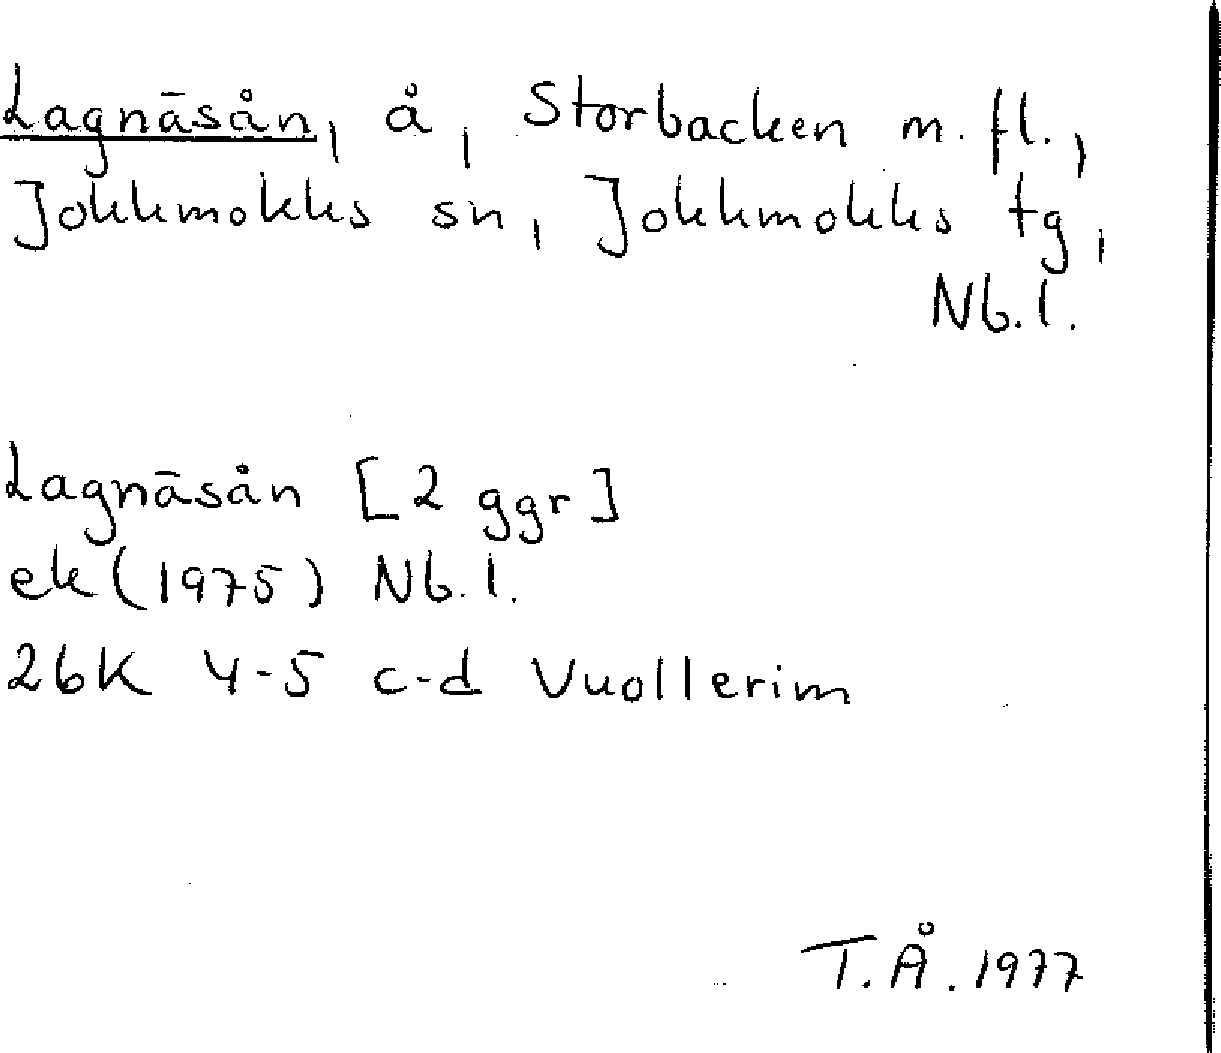 Lagnäsån, å, Storbacken m. fl.,
Jokkmokks sn, Jokkmokks tg,
Nb. l.
Lagnäsån [2 ggr]
ek (1975) Nb. l.
26K 4-5 c-d Vuollerim
T. Å. 1977